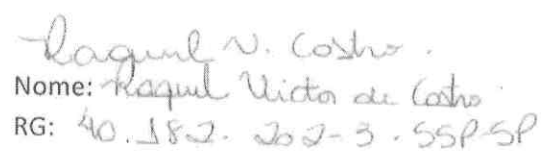 Raquel V. Castro.
Nome: Raquel Victor de Castro
RG: 40.182.202-3.SSP-SP